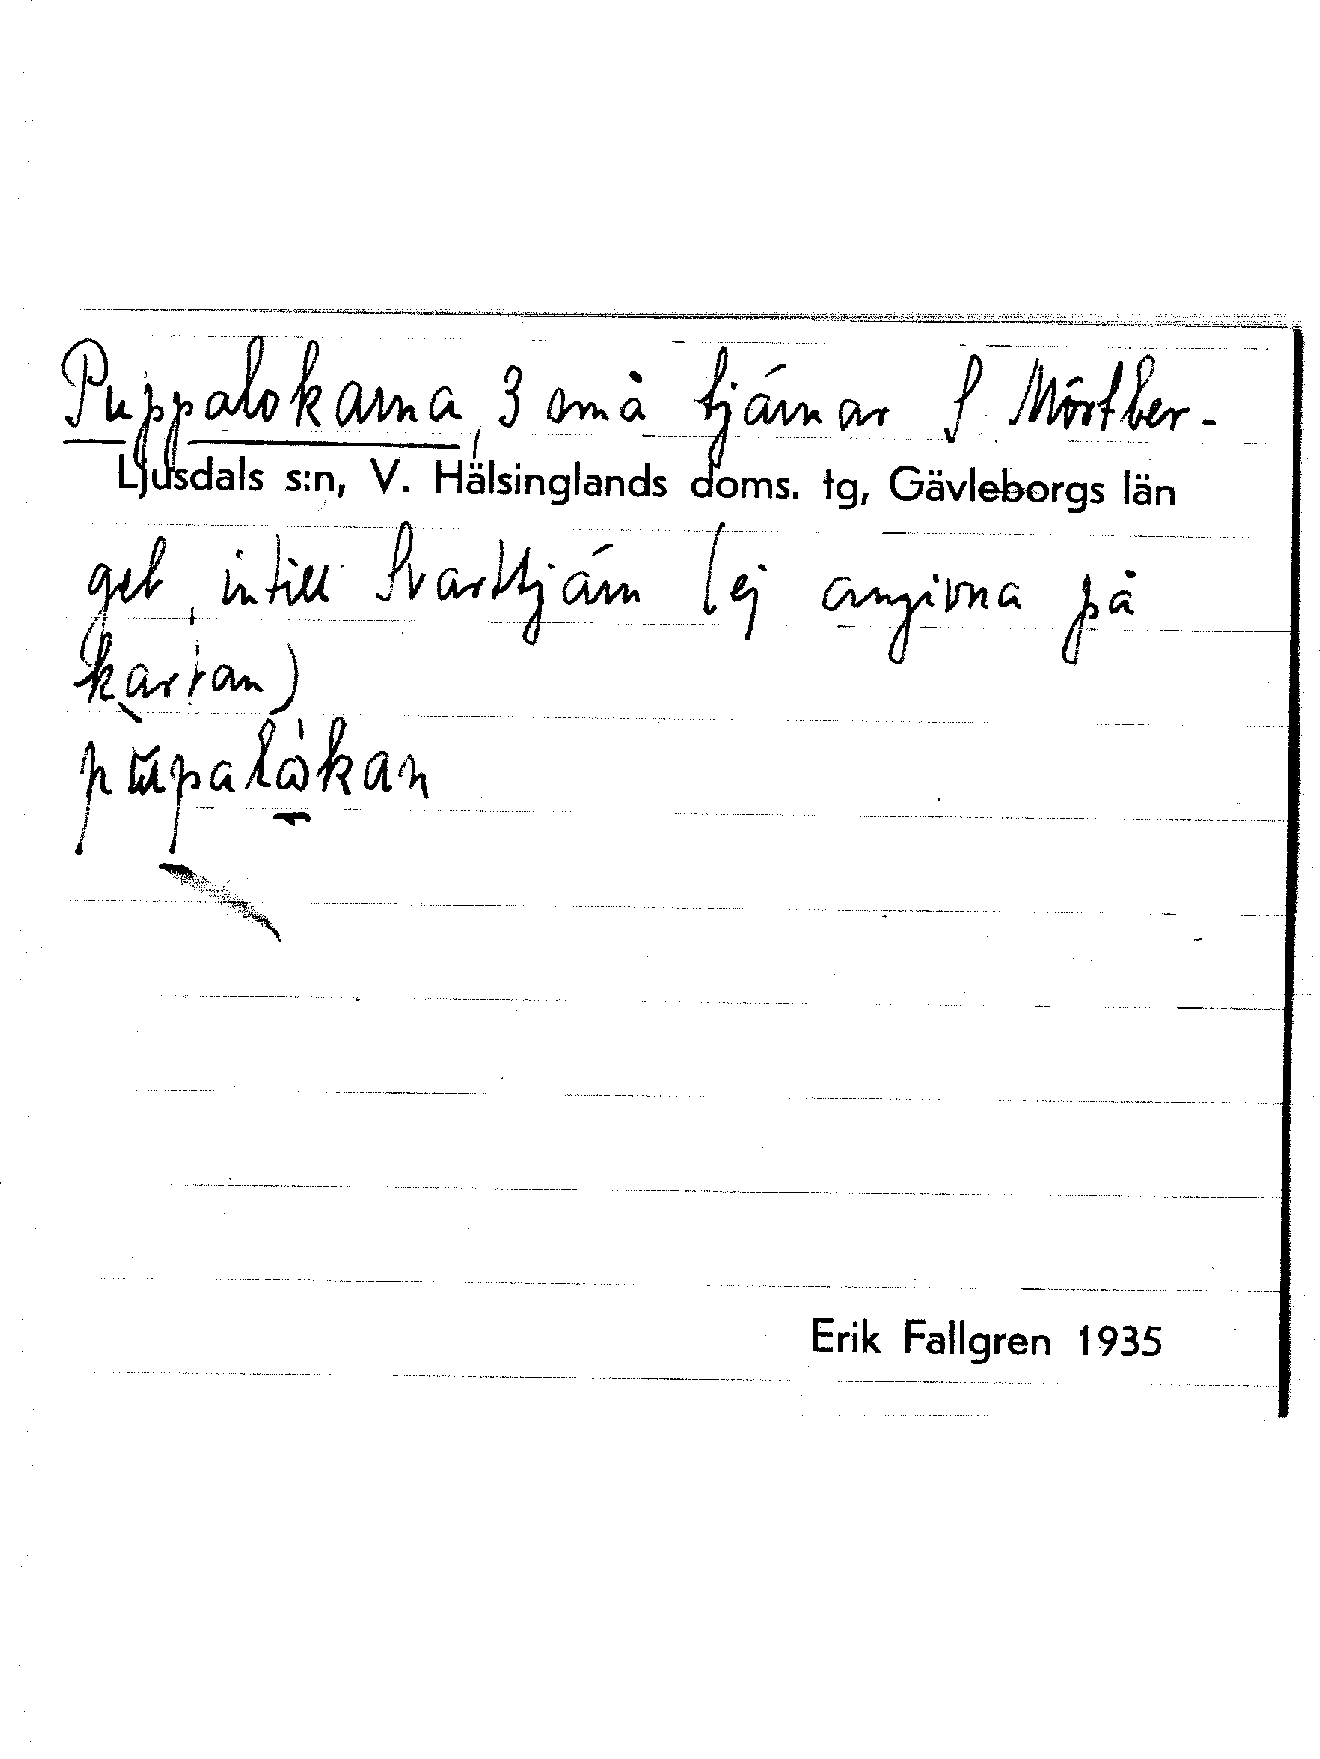 Puppalokarna, 3 små tjärnar S Mörtber-
Ljusdals s:n, V. Hälsinglands doms. tg, Gävleborgs län
get, intill Svarttjärn (ej angivna på
kartan)
Erik Fallgren 1935